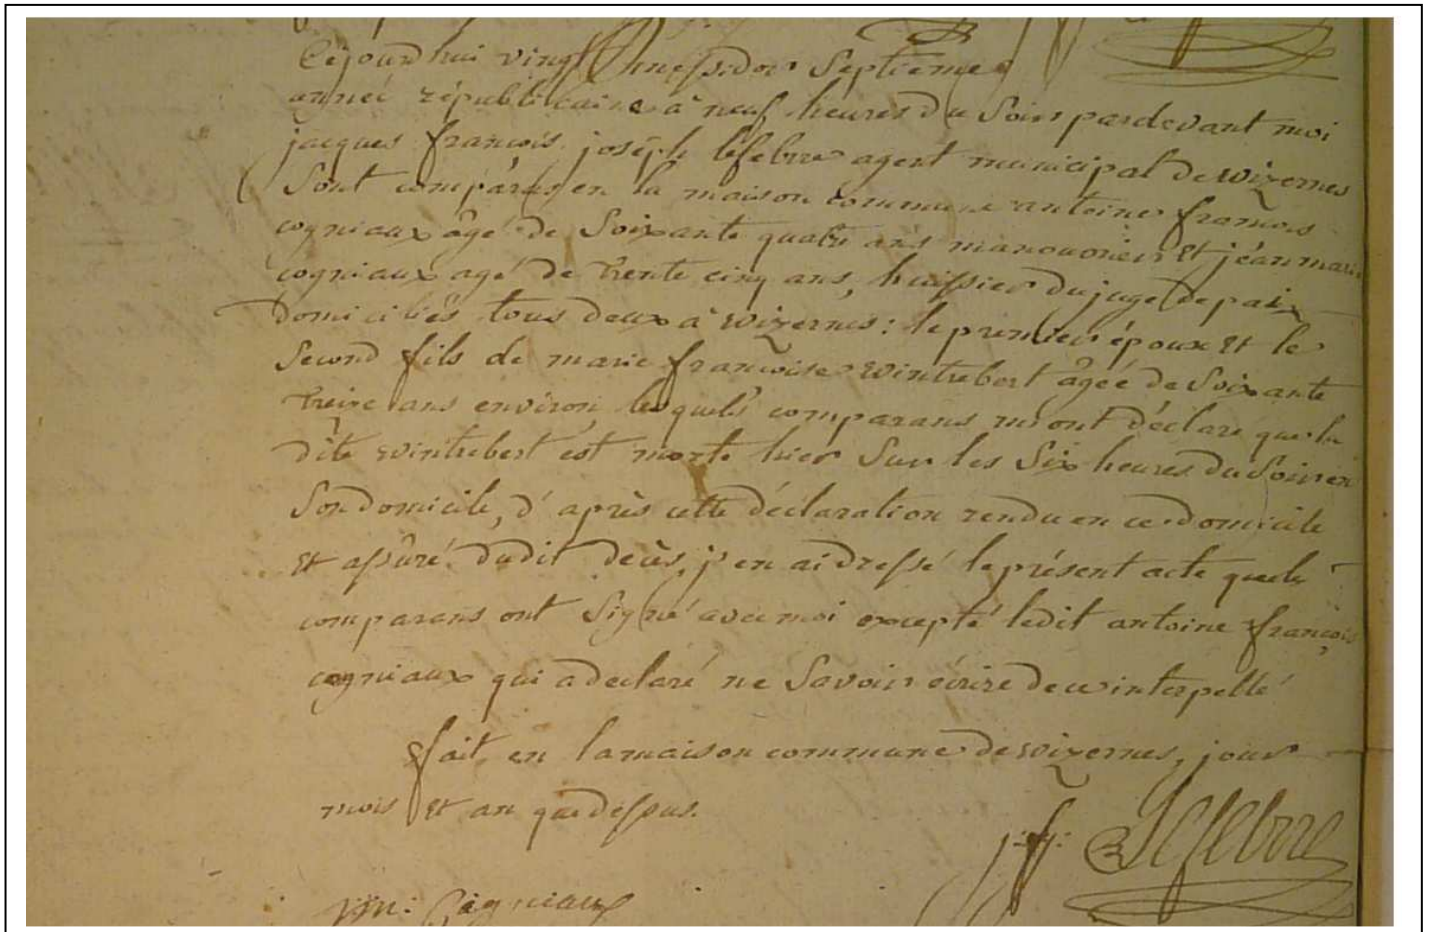 Cejourd'hui vingt messidor Septieme
année républicaine à neuf heures du Soir pardevant moi
jacques françois joseph lefebvre agent municipal de wizernes
Sont comparus en la maison commune antoine françois
cogniaux âgé de Soixante quatre ans manouvrier et jéan marie
cogniaux agé de trente cinq ans, huissier du juge de paix
domiciliés tous deux à wizernes: le premier époux et le
Second fils de marie françoise wintrebert âgée de Soixante
treize ans environ, lesquels comparans m'ont déclaré que la
dite wintrebert est morte hier Sur les Six heures du Soir en
Son domicile, d'après cette déclaration rendu en ce domicile
et assuré dudit décès, j'en ai dressé le présent acte que les
comparans ont Signé avec moi excepté ledit antoine françois
cogniaux qui a declaré ne Savoir écrire de ce interpellé
fait en la maison commune de wizernes, jour
mois et an que dessus.
j: f: Lefebvre
Cogniaux